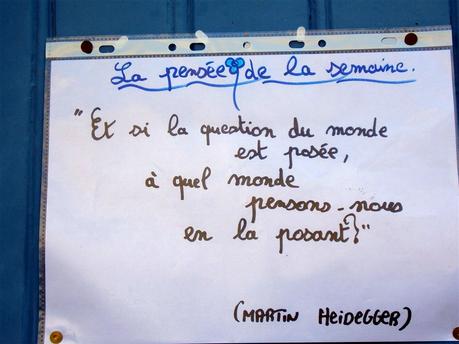 La pensée de la semaine.
"Et si la question du monde
est posée,
à quel monde
pensons-nous
en la posant?"
(MARTIN HEIDEGGER)